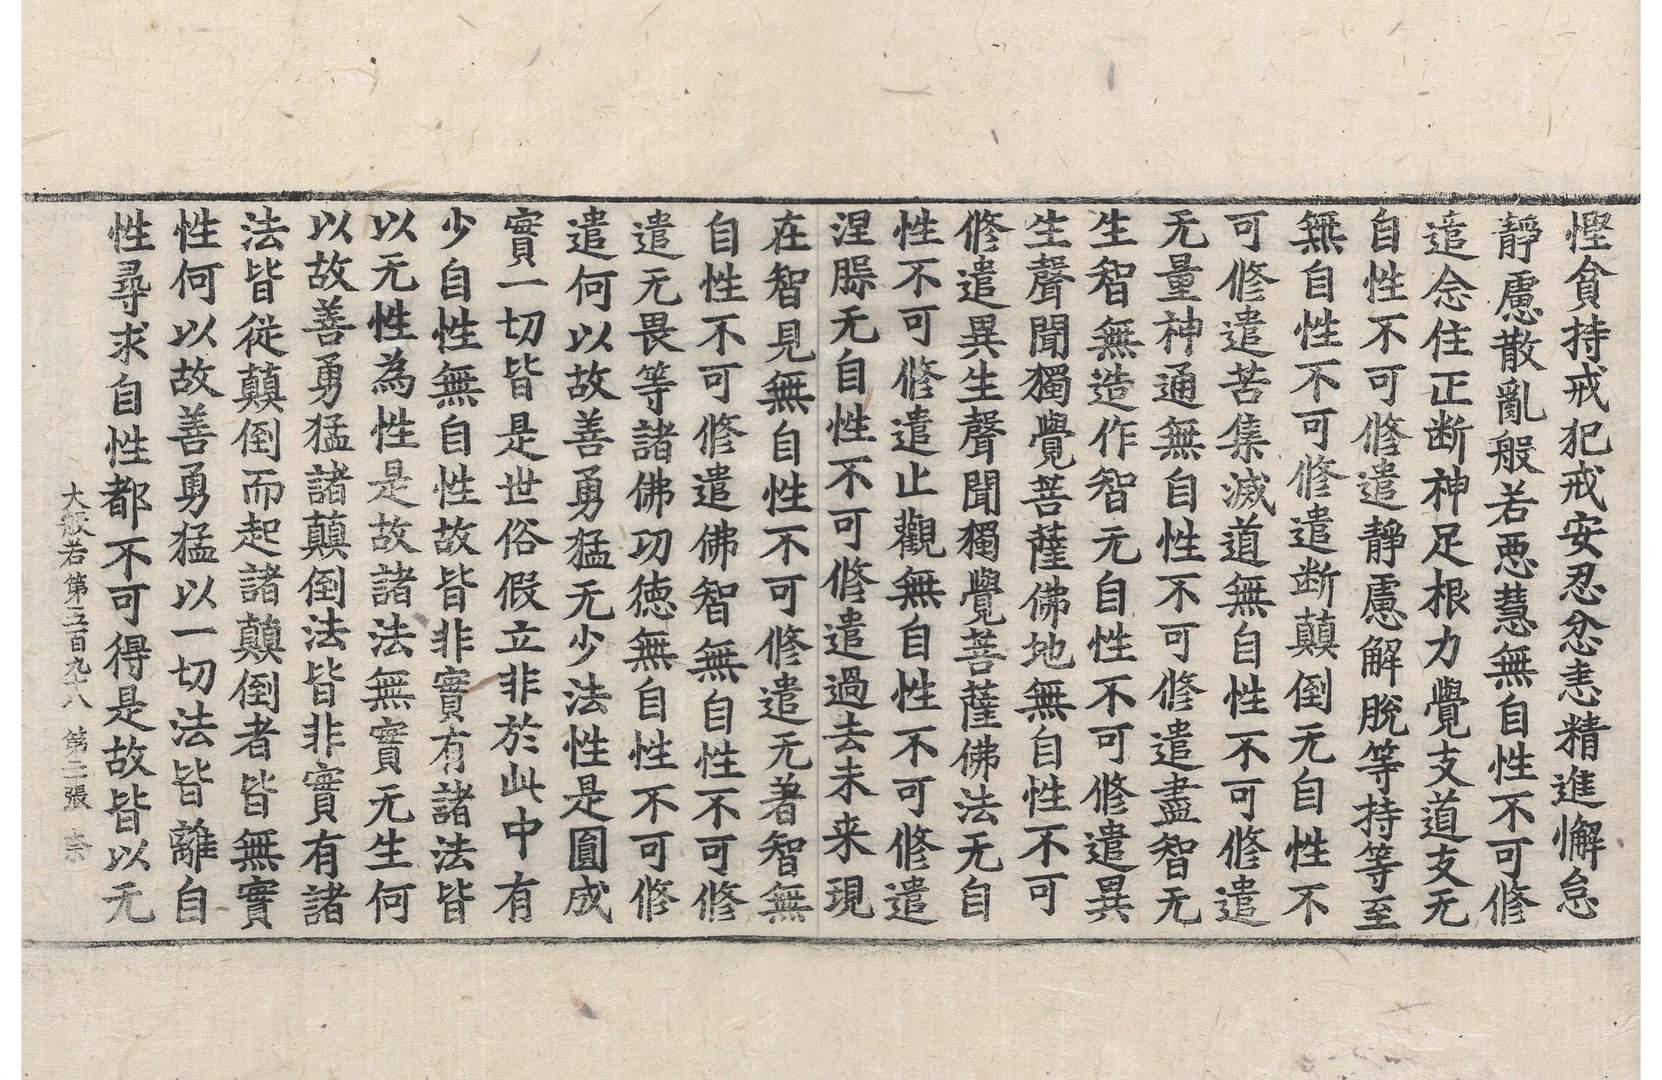 慳貪持戒犯戒安忍忿恚精進懈怠
靜慮散亂般若悪慧無自性不可修
遣念住正断神足根力覺支道支无
自性不可修遣靜慮解脫等持等至
無自性不可修遣断顛倒无自性不
可修遣苦集滅道無自性不可修遣
无量神通無自性不可修遣盡智无
生智無造作智无自性不可修遣異
生聲聞獨覺菩薩佛地無自性不可
修遣異生聲聞獨覺菩薩佛法无自
性不可修遣止觀無自性不可修遣
涅槃无自性不可修遣過去未来現
在智見無自性不可修遣无著智無
自性不可修遣佛智無自性不可修
遣无畏等諸佛功徳無自性不可修
遣何以故善勇猛无少法性是圓成
實一切皆是世俗假立非於此中有
少自性無自性故皆非實有諸法皆
以无性為性是故諸法無實无生何
以故善勇猛諸顛倒法皆非實有諸
法皆從顛倒而起諸顛倒者皆無實
性何以故善勇猛以一切法皆離自
性尋求自性都不可得是故皆以无
大般若第五百九八 第二張 柰